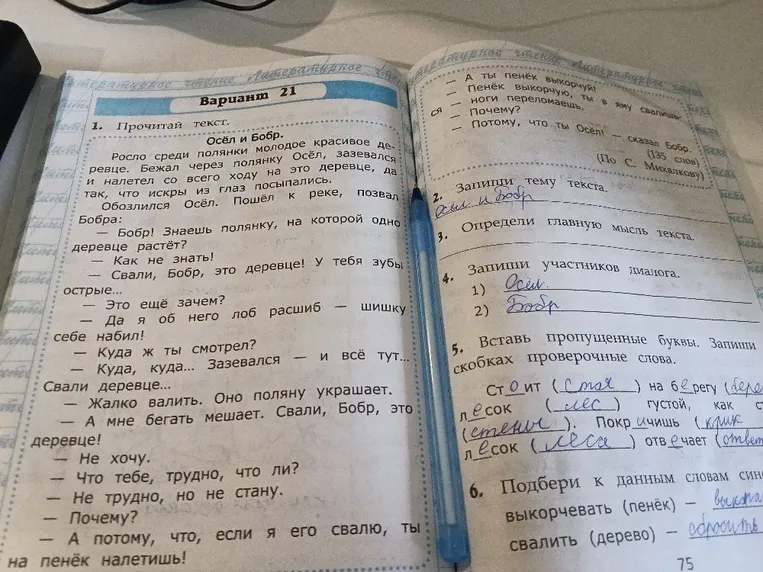 Литературное чтение Литературное
Вариант 21
1. Прочитай текст.
Осёл и Бобр.
Росло среди полянки молодое красивое де-
ревце. Бежал через полянку Осёл, зазевался
и налетел со всего ходу на это деревце, да
так, что искры из глаз посыпались.
Обозлился Осёл. Пошёл к реке, позвал
Бобра:
— Бобр! Знаешь полянку, на которой одно
деревце растёт?
— Как не знать!
— Свали, Бобр, это деревце! У тебя зубы
острые...
— Это ещё зачем?
— Да я об него лоб расшиб — шишку
себе набил!
— Куда ж ты смотрел?
— Куда, куда... Зазевался — и всё тут...
Свали деревце...
— Жалко валить. Оно поляну украшает.
— А мне бегать мешает. Свали, Бобр, это
деревце!
— Не хочу.
— Что тебе, трудно, что ли?
— Не трудно, но не стану.
— Почему?
— А потому, что, если я его свалю, ты
на пенёк налетишь!
Литературное чтение
— А ты пенёк выкорчуй!
— Пенёк выкорчую, ты в яму свалишь-
ся — ноги переломаешь.
— Почему?
— Потому, что ты Осёл! — сказал Бобр.
(135 слов)
(По С. Михалкову)
2. Запиши тему текста.
Осёл и Бобр
3. Определи главную мысль текста.
4. Запиши участников диалога.
1) Осёл.
2) Бобр
5. Вставь пропущенные буквы. Запиши
скобках проверочные слова.
Ст о ит ( стоя ) на б е регу (
л е сок ( лес ) густой, как
( стены ). Покр и чишь ( крик
л е сок ( леса ) отв е чает ( ответ
6. Подбери к данным словам
выкорчевать (пенёк) —
свалить (дерево) — сбросить
75